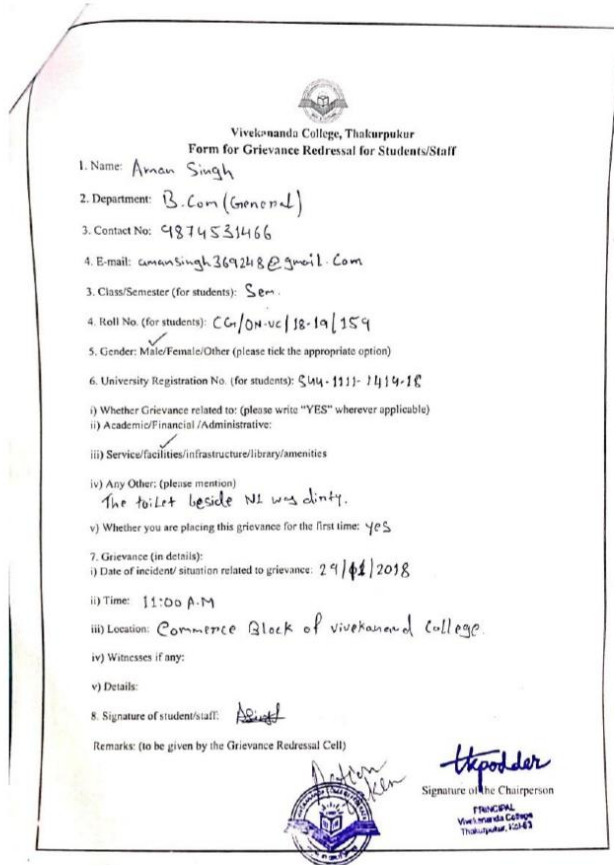 Vivekananda College, Thakurpukur
Form for Grievance Redressal for Students/Staff
1. Name: Aman Singh
2. Department: B.Com (General)
3. Contact No: 9874531466
4. E-mail: amansingh369248@gmail.com
3. Class/Semester (for students): Sem.
4. Roll No. (for students): CG/ON-VC/18-19/159
5. Gender: Male/Female/Other (please tick the appropriate option)
6. University Registration No. (for students): 544-1111-1414-18
i) Whether Grievance related to: (please write "YES" wherever applicable)
ii) Academic/Financial /Administrative:
iii) Service/facilities/infrastructure/library/amenities
iv) Any Other: (please mention)
The toilet beside N1 was dirty.
v) Whether you are placing this grievance for the first time: yes
7. Grievance (in details):
i) Date of incident/ situation related to grievance: 29/11/2018
ii) Time: 11:00 A.M
iii) Location: Commerce Block of vivekanand College.
iv) Witnesses if any:
v) Details:
8. Signature of student/staff: ASingh
Remarks: (to be given by the Grievance Redressal Cell)
Action
taken
tkpodder
Signature of the Chairperson
PRINCIPAL
Vivekananda College
Thakurpukur, Kol-63